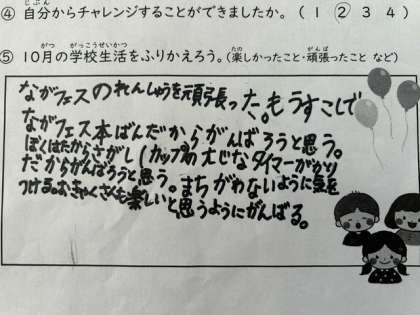 ④ 自分からチャレンジすることができましたか。（ 1 ② 3 4 ）
⑤ 10月の学校生活をふりかえろう。（楽しかったこと・頑張ったこと など）
ながフェスのれんしゅうを頑張った。もうすこしで
ながフェス本ばんだからがんばろうと思う。
ぼくはたからさがし1カップめの大じなタイマーがかり
だからがんばろうと思う。まちがわないように気を
つける。おきゃくさんも楽しいと思うようにがんばる。